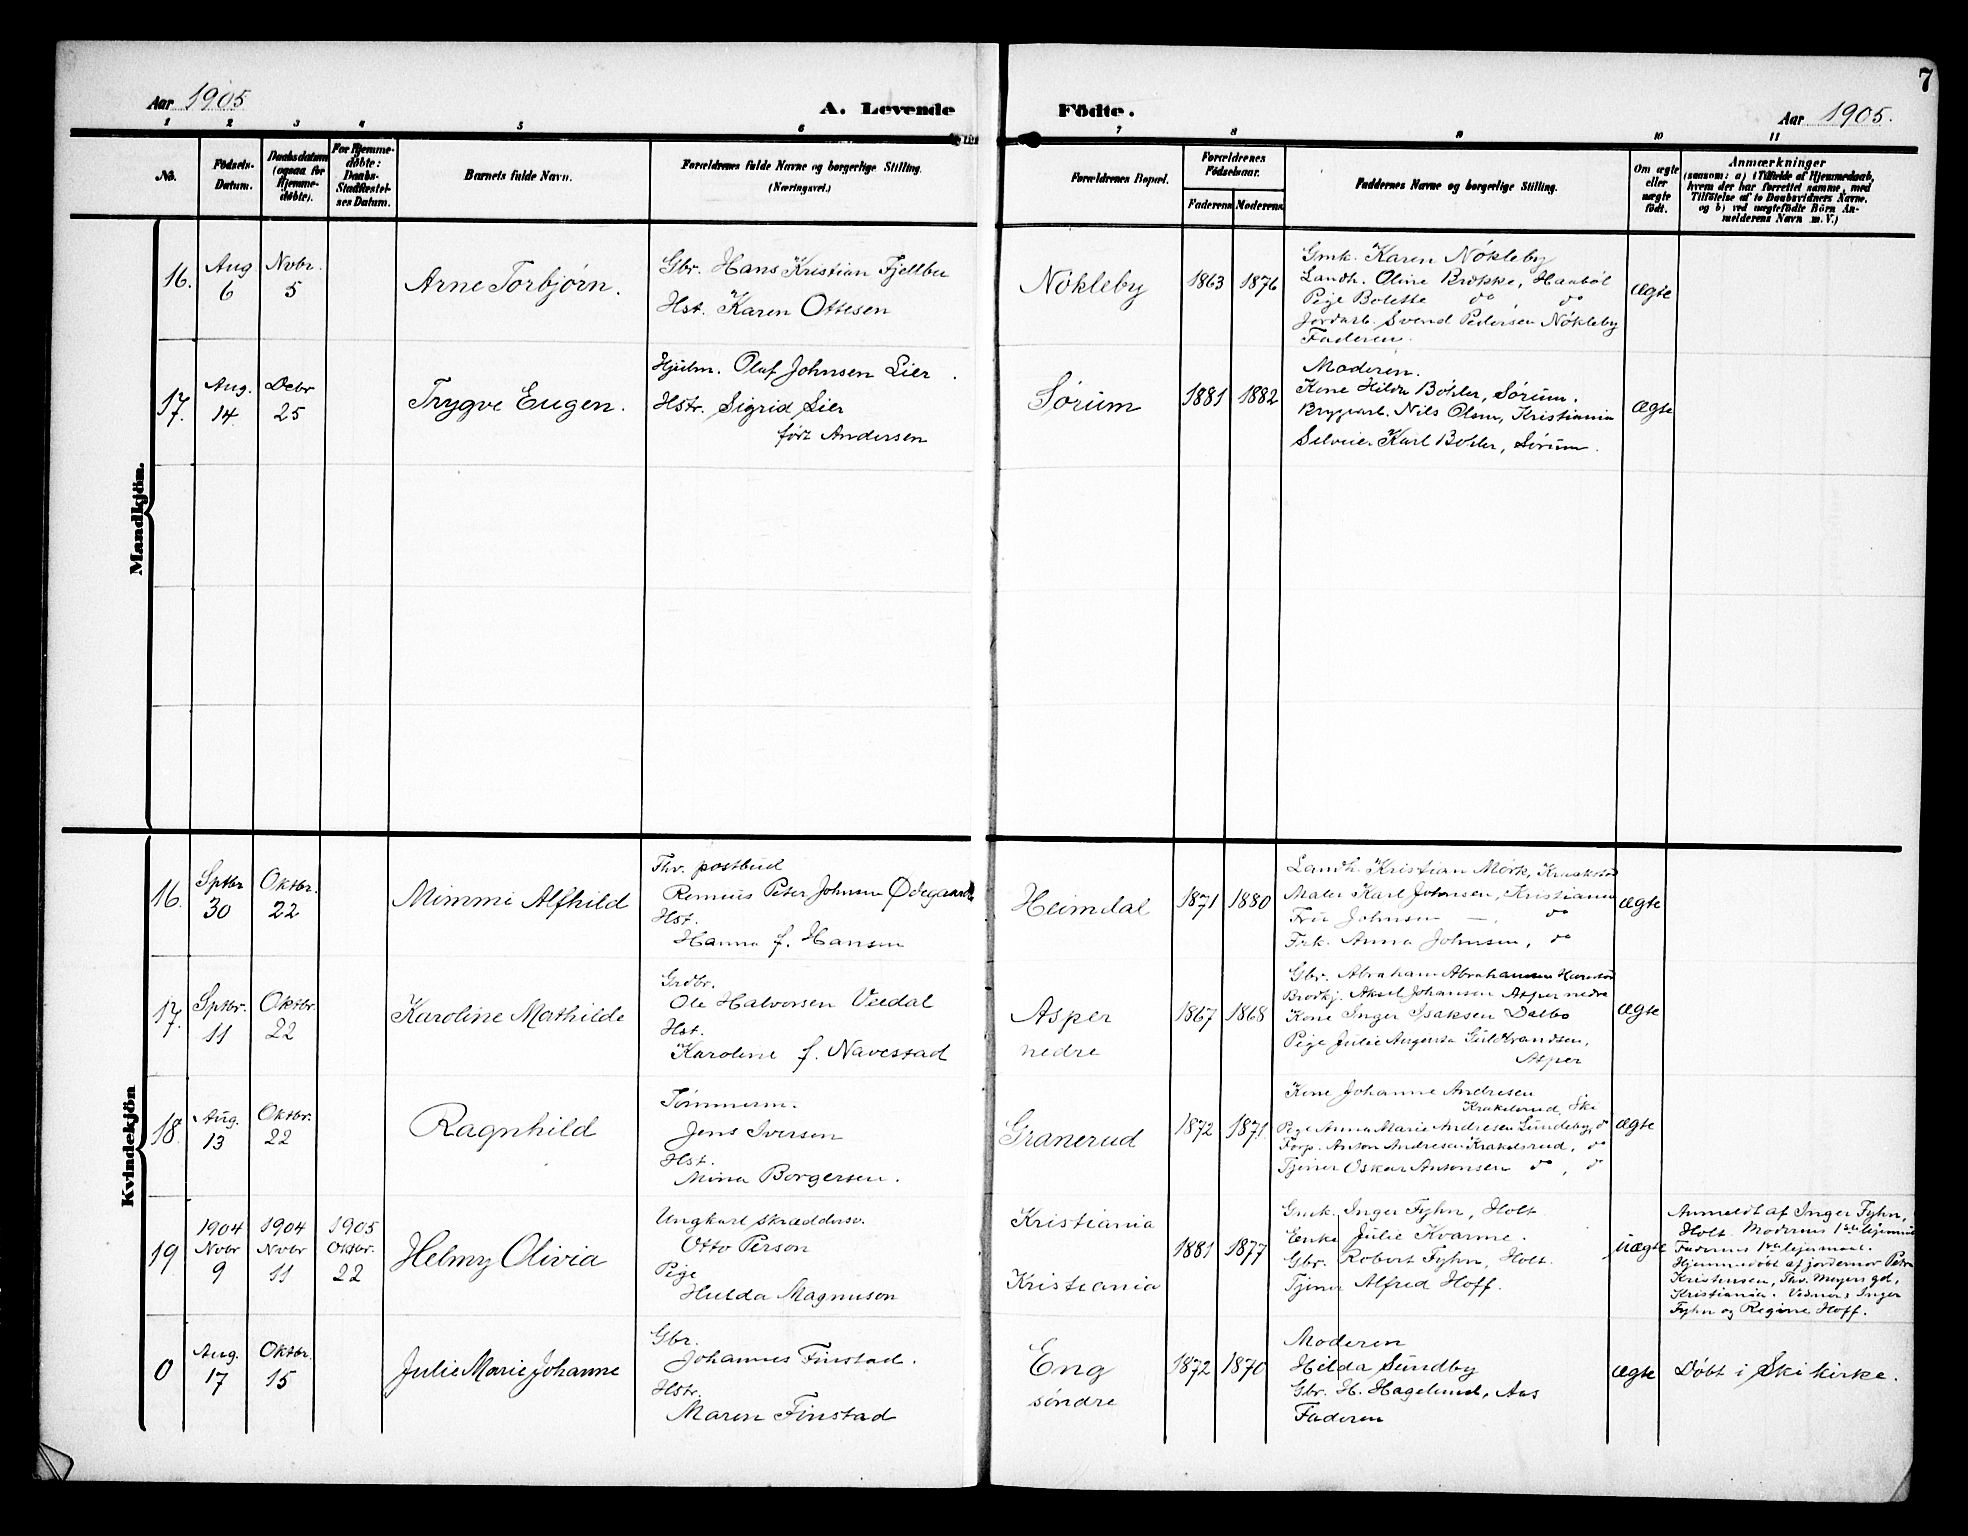 7
Aar 1905
A. Levende
Födte.
Aar 1905.
1 2 3 4 5 6 7 8 9 10 11
No.
Födsels-
Datum.
Daabsdatum
(ogsaa for
Hjemme-
døbte).
For Hjemme-
døbte:
Daabs-
Stadfæstel-
ses Datum.
Barnets fulde Navn.
Forældrenes fulde Navne og borgerlige Stilling.
(Næringsvei.)
Forældrenes Bopæl.
Forældrenes
Födselsaar.
Faderens
Moderens
Faddernes Navne og borgerlige Stilling.
Om ægte
eller
uægte
født.
Anmærkninger
(saasom: a) i Tilfælde af Hjemmedaab,
hvem der har forrettet samme, med
Tilföielse af to Daabsvidners Navne.
og b) ved uægtefödte Börn An-
melderens Navn m. V.)
Mandkjön.
16.
Aug
6
Novbr.
5
Arne Torbjørn.
Gbr. Hans Kristian Fjellbu
Hst. Karen Ottesen
Nökleby
1863
1876
Gmk. Karen Nökleby
Landh. Oline Brekke, Haabøl
Pige Bolette do, do
Jordarb. Svend Pedersen Nökleby
Faderen.
ægte
17.
Aug.
14
Debr
25
Trygve Eugen.
Hjulm. Olaf Johnsen Lier.
Hstr. Sigrid Lier
født Andersen
Sørum
1881
1882
Moderen.
Kone Hilda Bøhler, Sørum.
Brygarb. Nils Olsen, Kristiania
Karl Bøhler, Sørum.
ægte
Kvindekjön
16.
Sptbr
30
Oktbr.
22
Mimmi Alfhild
Fhv. postbud
Remius Peter Johnsen Ødegaard
Hst.
Hanna f. Hansen
Heimdal
1871
1880
Landh. Kristian Mørk, Kraakstad
Maler Karl Johnsen, Kristiania
Fru Johnsen —, do
Frk. Anna Johnsen, do
ægte
17.
Sptbr.
11
Oktbr.
22
Karoline Mathilde
Grdbr.
Ole Halvorsen Veidal
Hst.
Karoline f. Navestad
Asper
nedre
1867
1868
Gbr. Abraham Abrahamsen
Brødkj. Aksel Johansen Asper nedre
Kone Inger Isaksen Dalbo
Pige Julie Augusta Guldbrandsen,
Asper
ægte
18.
Aug.
13
Oktbr.
22
Ragnhild
Tömmerm.
Jens Iversen
Hst.
Mina Borgersen.
Granerud
1872
1871
Kone Johanne Andresen
Krakelsrud, Ski
Pige Anna Marie Andresen Sundeby, do
Forp. Anton Andresen Krakelsrud, do
Tjener Oskar Antonsen do, do
ægte
19
1904
Novbr
9
1904
Novbr
11
1905
Oktbr.
22
Helmy Olivia
Ungkarl skræddersv.
Otto Person
Pige
Hulda Magnuson
Kristiania
Kristiania
1881
1877
Gmk. Inger Fyhn, Holt
Enke Julie Kvarme.
Gbr. Robert Fyhn, Holt.
Tjener Alfred Hoff.
uægte
Anmeldt af Inger Fyhn,
Holt. Moderens 1ste leiermaal
Faderens 1ste leiermaal.
Hjemmedøbt af jordemor Petra
Kristensen, Thv. Meyers gd,
Kristiania. Vidner: Inger
Fyhn og Regine Hoff.
0
Aug.
17
Oktbr.
15
Julie Marie Johanne
Gbr.
Johannes Finstad.
Hstr.
Maren Finstad
Eng
søndre
1872
1870
Moderen
Hilda Sundby
Gbr. H. Hagelund, Aas
Faderen
ægte
Døbt i Ski kirke.